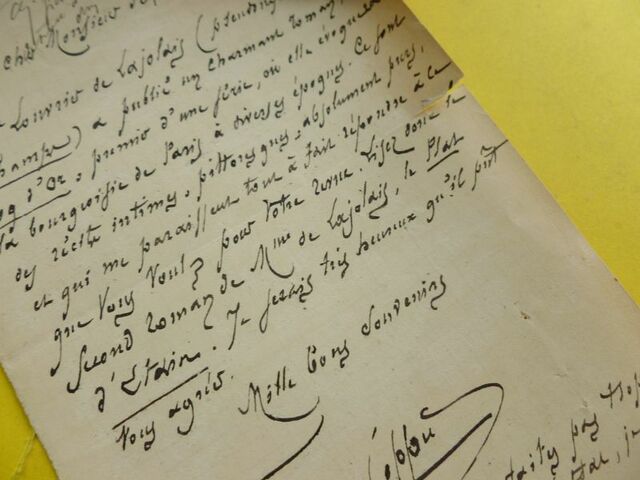 Cher Monsieur
Louvrio de Lajolais (pseudony
Champs) a publié un charmant roman,
d'Or, premio d'une série, où elle évoquera
la bourgeoisie de Paris à diverses époques. Ce sont
des récits intimes, pittoresques, absolument purs,
et qui me paraissent tout à fait répondre à ce
que vous voulez pour votre revue. Lisez donc le
second roman de Mme de Lajolais, le Plat
d'Étain. Je serais très heureux qu'il pût
vous agréer.
Mille bons souvenirs
pas trop